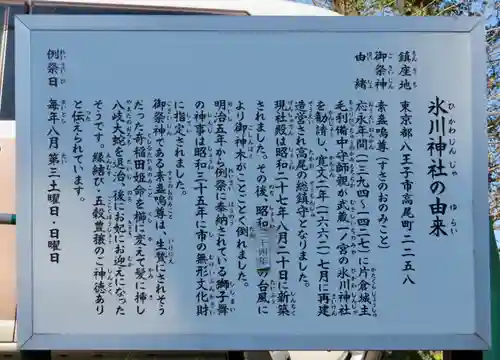 氷川神社の由来
鎮座地　東京都八王子市高尾町二二五八
御祭神　素盞嗚尊（すさのおのみこと）
由緒　応永年間（一三九四〜一四二七）に片倉城主
毛利備中守師親が武蔵一ノ宮の氷川神社
を勧請し、寛文二年（一六六二）七月に再建
造営され高尾の総鎮守となりました。
現社殿は昭和二十七年八月二十日に新築
されました。その後、昭和三十四年の台風に
より御神木がことごとく倒れました。
明治五年から例祭に奉納されている獅子舞
の神事は昭和三十五年に市の無形文化財
に指定されました。
御祭神である素盞嗚尊は、生贄にされそう
だった奇稲田姫命を櫛に変えて髪に挿し
八岐大蛇を退治し後にお妃にお迎えになった
そうです。縁結び・五穀豊穣のご神徳あり
と伝えられています。
例祭日　毎年八月　第三土曜日・日曜日